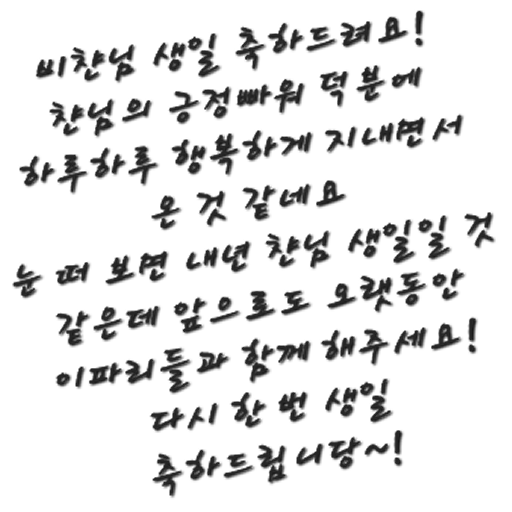 비챤님 생일 축하드려요!
챤님의 긍정빠워 덕분에
하루하루 행복하게 지내면서
온 것 같네요
눈 떠 보면 내년 챤님 생일일 것
같은데 앞으로도 오랫동안
이파리들과 함께 해주세요!
다시 한 번 생일
축하드립니당~!